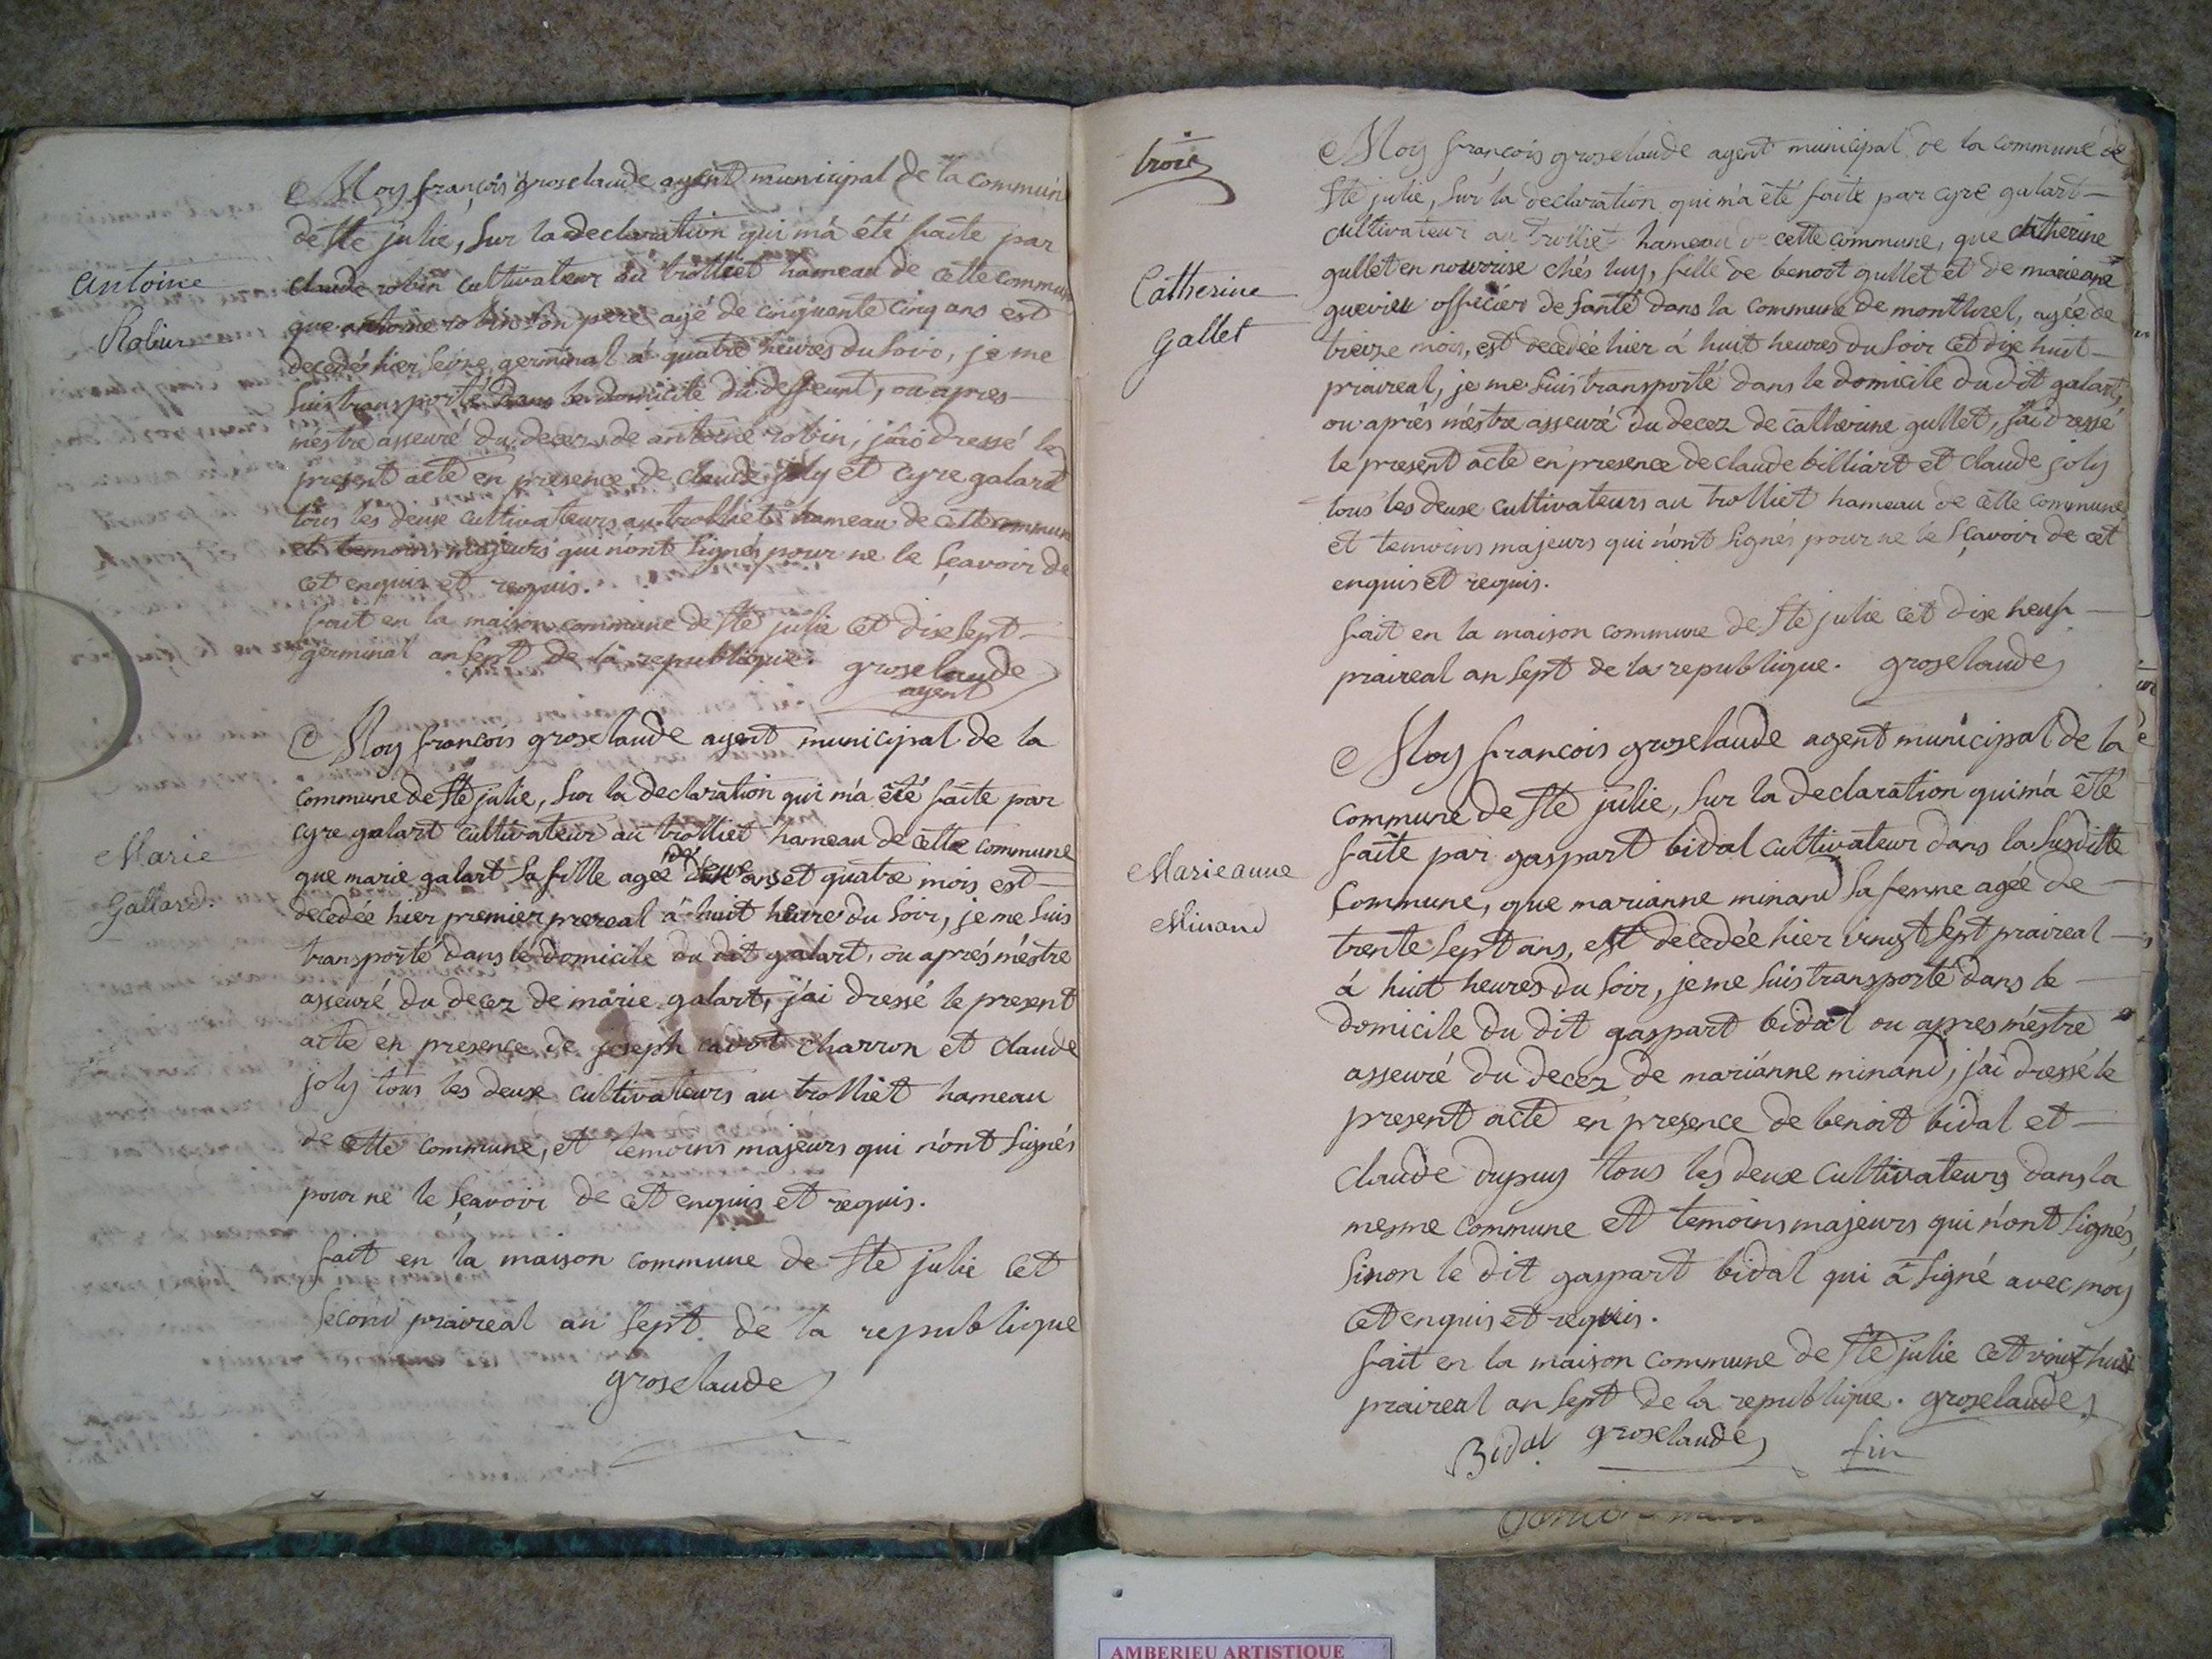 Antoine
Robin
Moy françois groselaude agent municipal de la commune
de Ste julie, sur la declaration qui m'a été faite par
claude robin cultivateur au trolliet hameau de cette commune
que antoine robin son pere agé de cinquante cinq ans est
decedé hier seize germinal à quatre heures du soir, je me
suis transporté dans le domicile du deffeunt, ou apres
m'éstre asseuré du decez de antoine robin, j'ai dressé le
present acte en presence de claude joly et cyre galart
tous les deuxe cultivateurs au trolliet hameau de cette commune
et temoins majeurs qui n'ont signés pour ne le sçavoir de
cet enquis et requis.
fait en la maison commune de Ste julie cet dixe sept
germinal an sept de la republique. groselaude
agent
Marie
Gallard.
Moy françois groselaude agent municipal de la
commune de Ste julie, sur la declaration qui m'a été faite par
cyre galart cultivateur au trolliet hameau de cette commune
que marie galart sa fille agée de deuxe ans et quatre mois est
decedée hier premier prereal à huit heure du soir, je me suis
transporté dans le domicile du dit galart, ou aprés m'éstre
asseuré du decez de marie galart, j'ai dressé le present
acte en presence de joseph charron et claude
joly tous les deuxe cultivateurs au trolliet hameau
de cette commune, et temoins majeurs qui n'ont signés
pour ne le sçavoir de cet enquis et requis.
fait en la maison commune de Ste julie cet
second praireal an sept de la republique
groselaude
trois
Catherine
Gallet
Moy françois groselaude agent municipal de la commune de
Ste julie, sur la declaration qui m'a été faite par cyre galart
cultivateur au trolliet hameau de cette commune, que catherine
gullet en nourrise chés luy, fille de benoot gullet et de marieane
officier de santé dans la commune de montluel, agée de
treize mois, est decedée hier à huit heures du soir cet dixe huit
praireal, je me suis transporté dans le domicile du dit galart,
ou aprés m'éstre asseuré du decez de catherine gullet, j'ai dressé
le present acte en presence de claude billiart et claude joly
tous les deuxe cultivateurs au trolliet hameau de cette commune
et temoins majeurs qui n'ont signés pour ne le sçavoir de cet
enquis et requis.
fait en la maison commune de Ste julie cet dixe neuf
praireal an sept de la republique. groselaude
Marieanne
Minand
Moy francois groselaude agent municipal de la
commune de Ste julie, sur la declaration qui m'a été
faite par gaspart bidal cultivateur dans la susditte
Commune, que marianne minand sa femme agée de
trente sept ans, est decedée hier vingt sept praireal
à huit heures du soir, je me suis transporté dans le
domicile du dit gaspart bidal ou apres m'éstre
asseuré du decez de marianne minand, j'ai dressé le
present acte en presence de benoit bidal et
claude dupuy tous les deuxe cultivateurs dans la
mesme commune et temoins majeurs qui n'ont signés,
sinon le dit gaspart bidal qui à signé avec moy
cet enquis et requis.
fait en la maison commune de Ste julie cet vingt huit
praireal an sept de la republique. groselaude
Bidal groselaude fin
AMBERIEU ARTISTIQUE